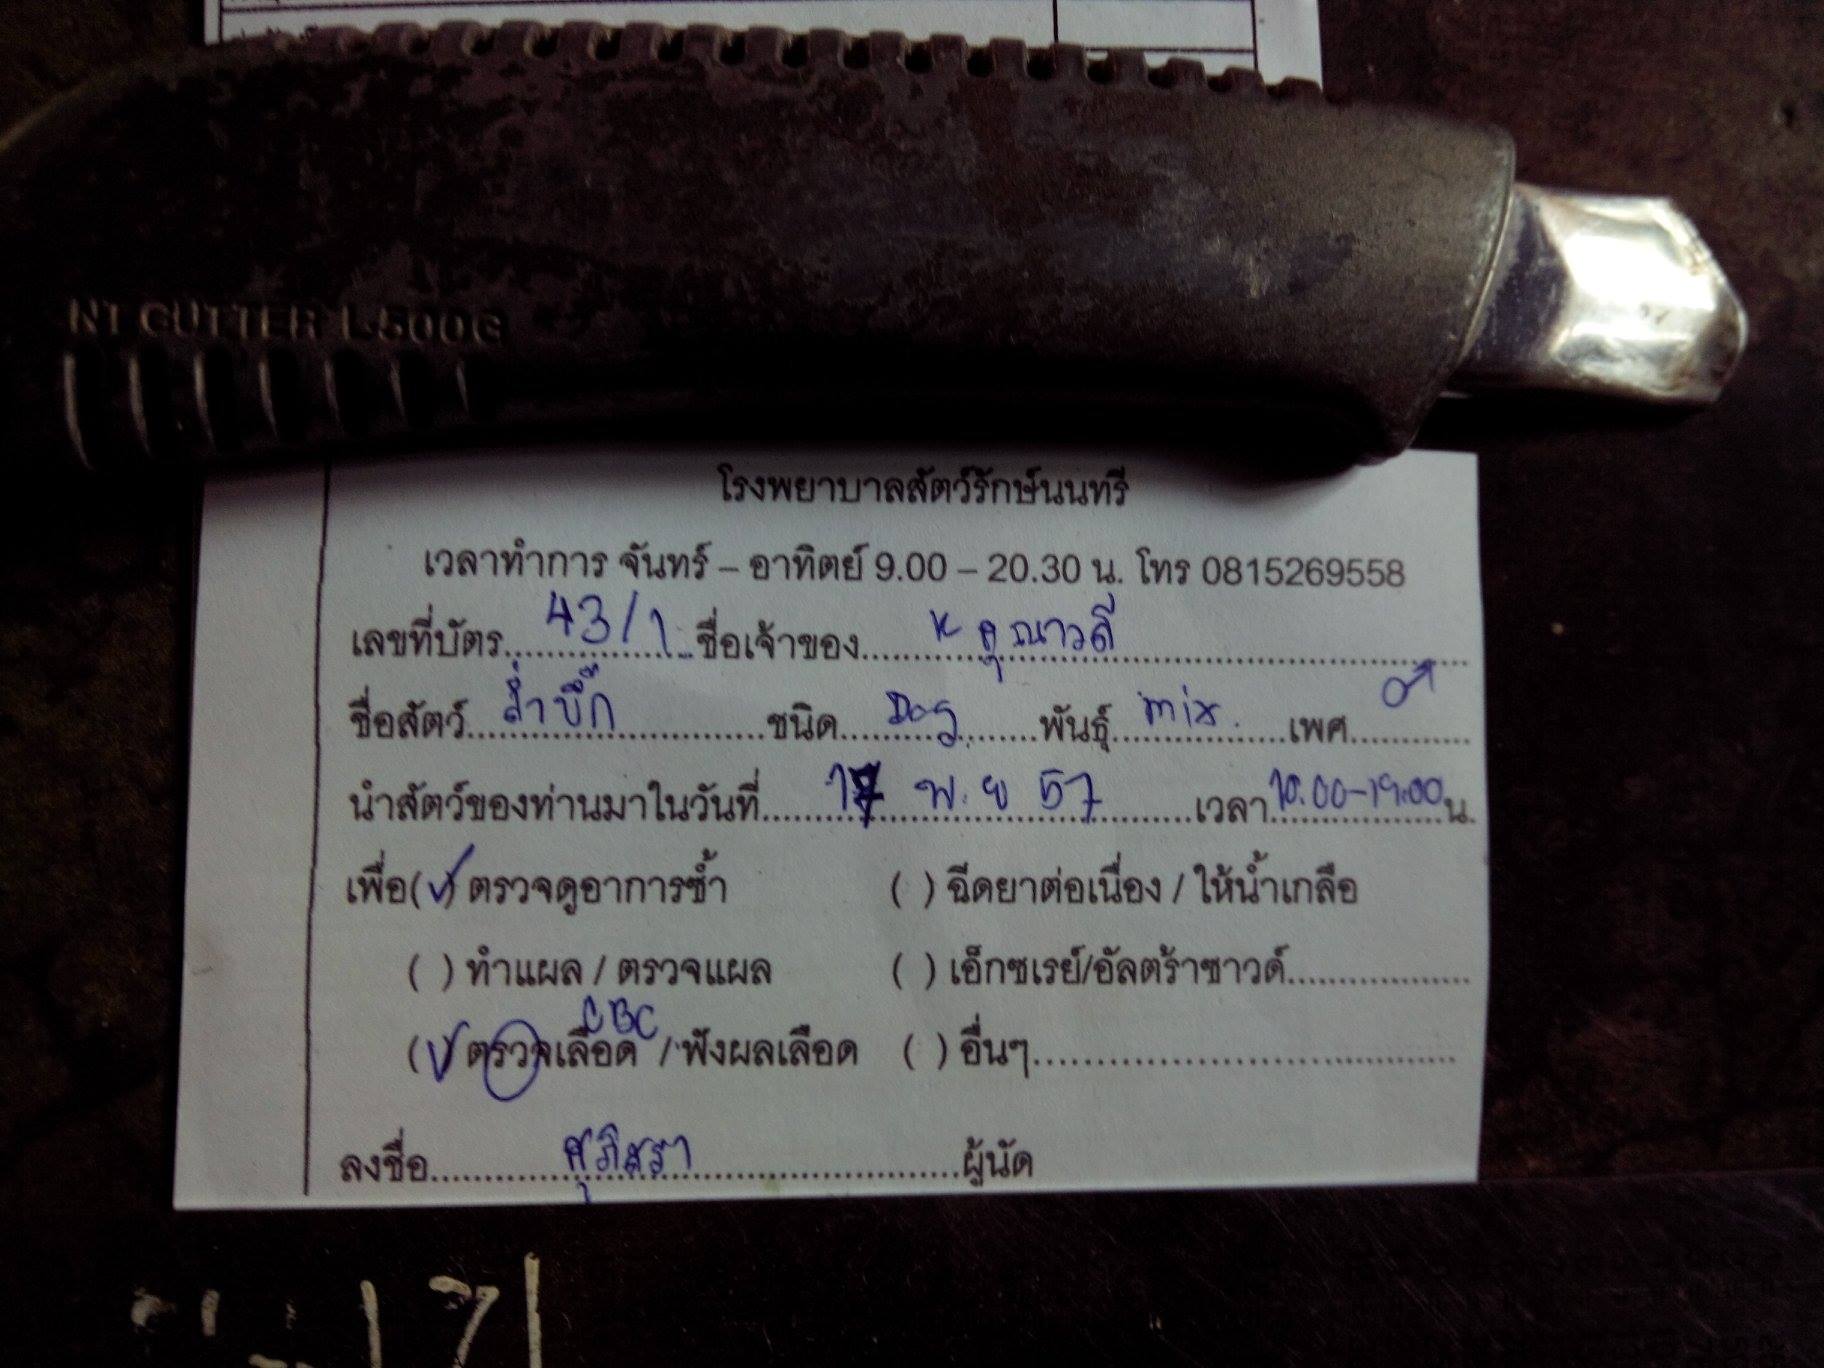 NT CUTTER L-500G
โรงพยาบาลสัตว์รักษ์นนทรี
เวลาทำการ จันทร์ – อาทิตย์ 9.00 – 20.30 น. โทร 0815269558
เลขที่บัตร 43/1 ชื่อเจ้าของ K คุณาวลี
ชื่อสัตว์ ล่ำบึ๊ก ชนิด Dog พันธุ์ mix. เพศ ♂
นำสัตว์ของท่านมาในวันที่ 17 พ.ย 57 เวลา 10.00-19.00 น.
เพื่อ(✓) ตรวจดูอาการซ้ำ ( ) ฉีดยาต่อเนื่อง / ให้น้ำเกลือ
( ) ทำแผล / ตรวจแผล ( ) เอ็กซเรย์/อัลตร้าซาวด์
CBC
(✓) ตรวจเลือด / ฟังผลเลือด ( ) อื่นๆ
ลงชื่อ ศุภิสรา ผู้นัด